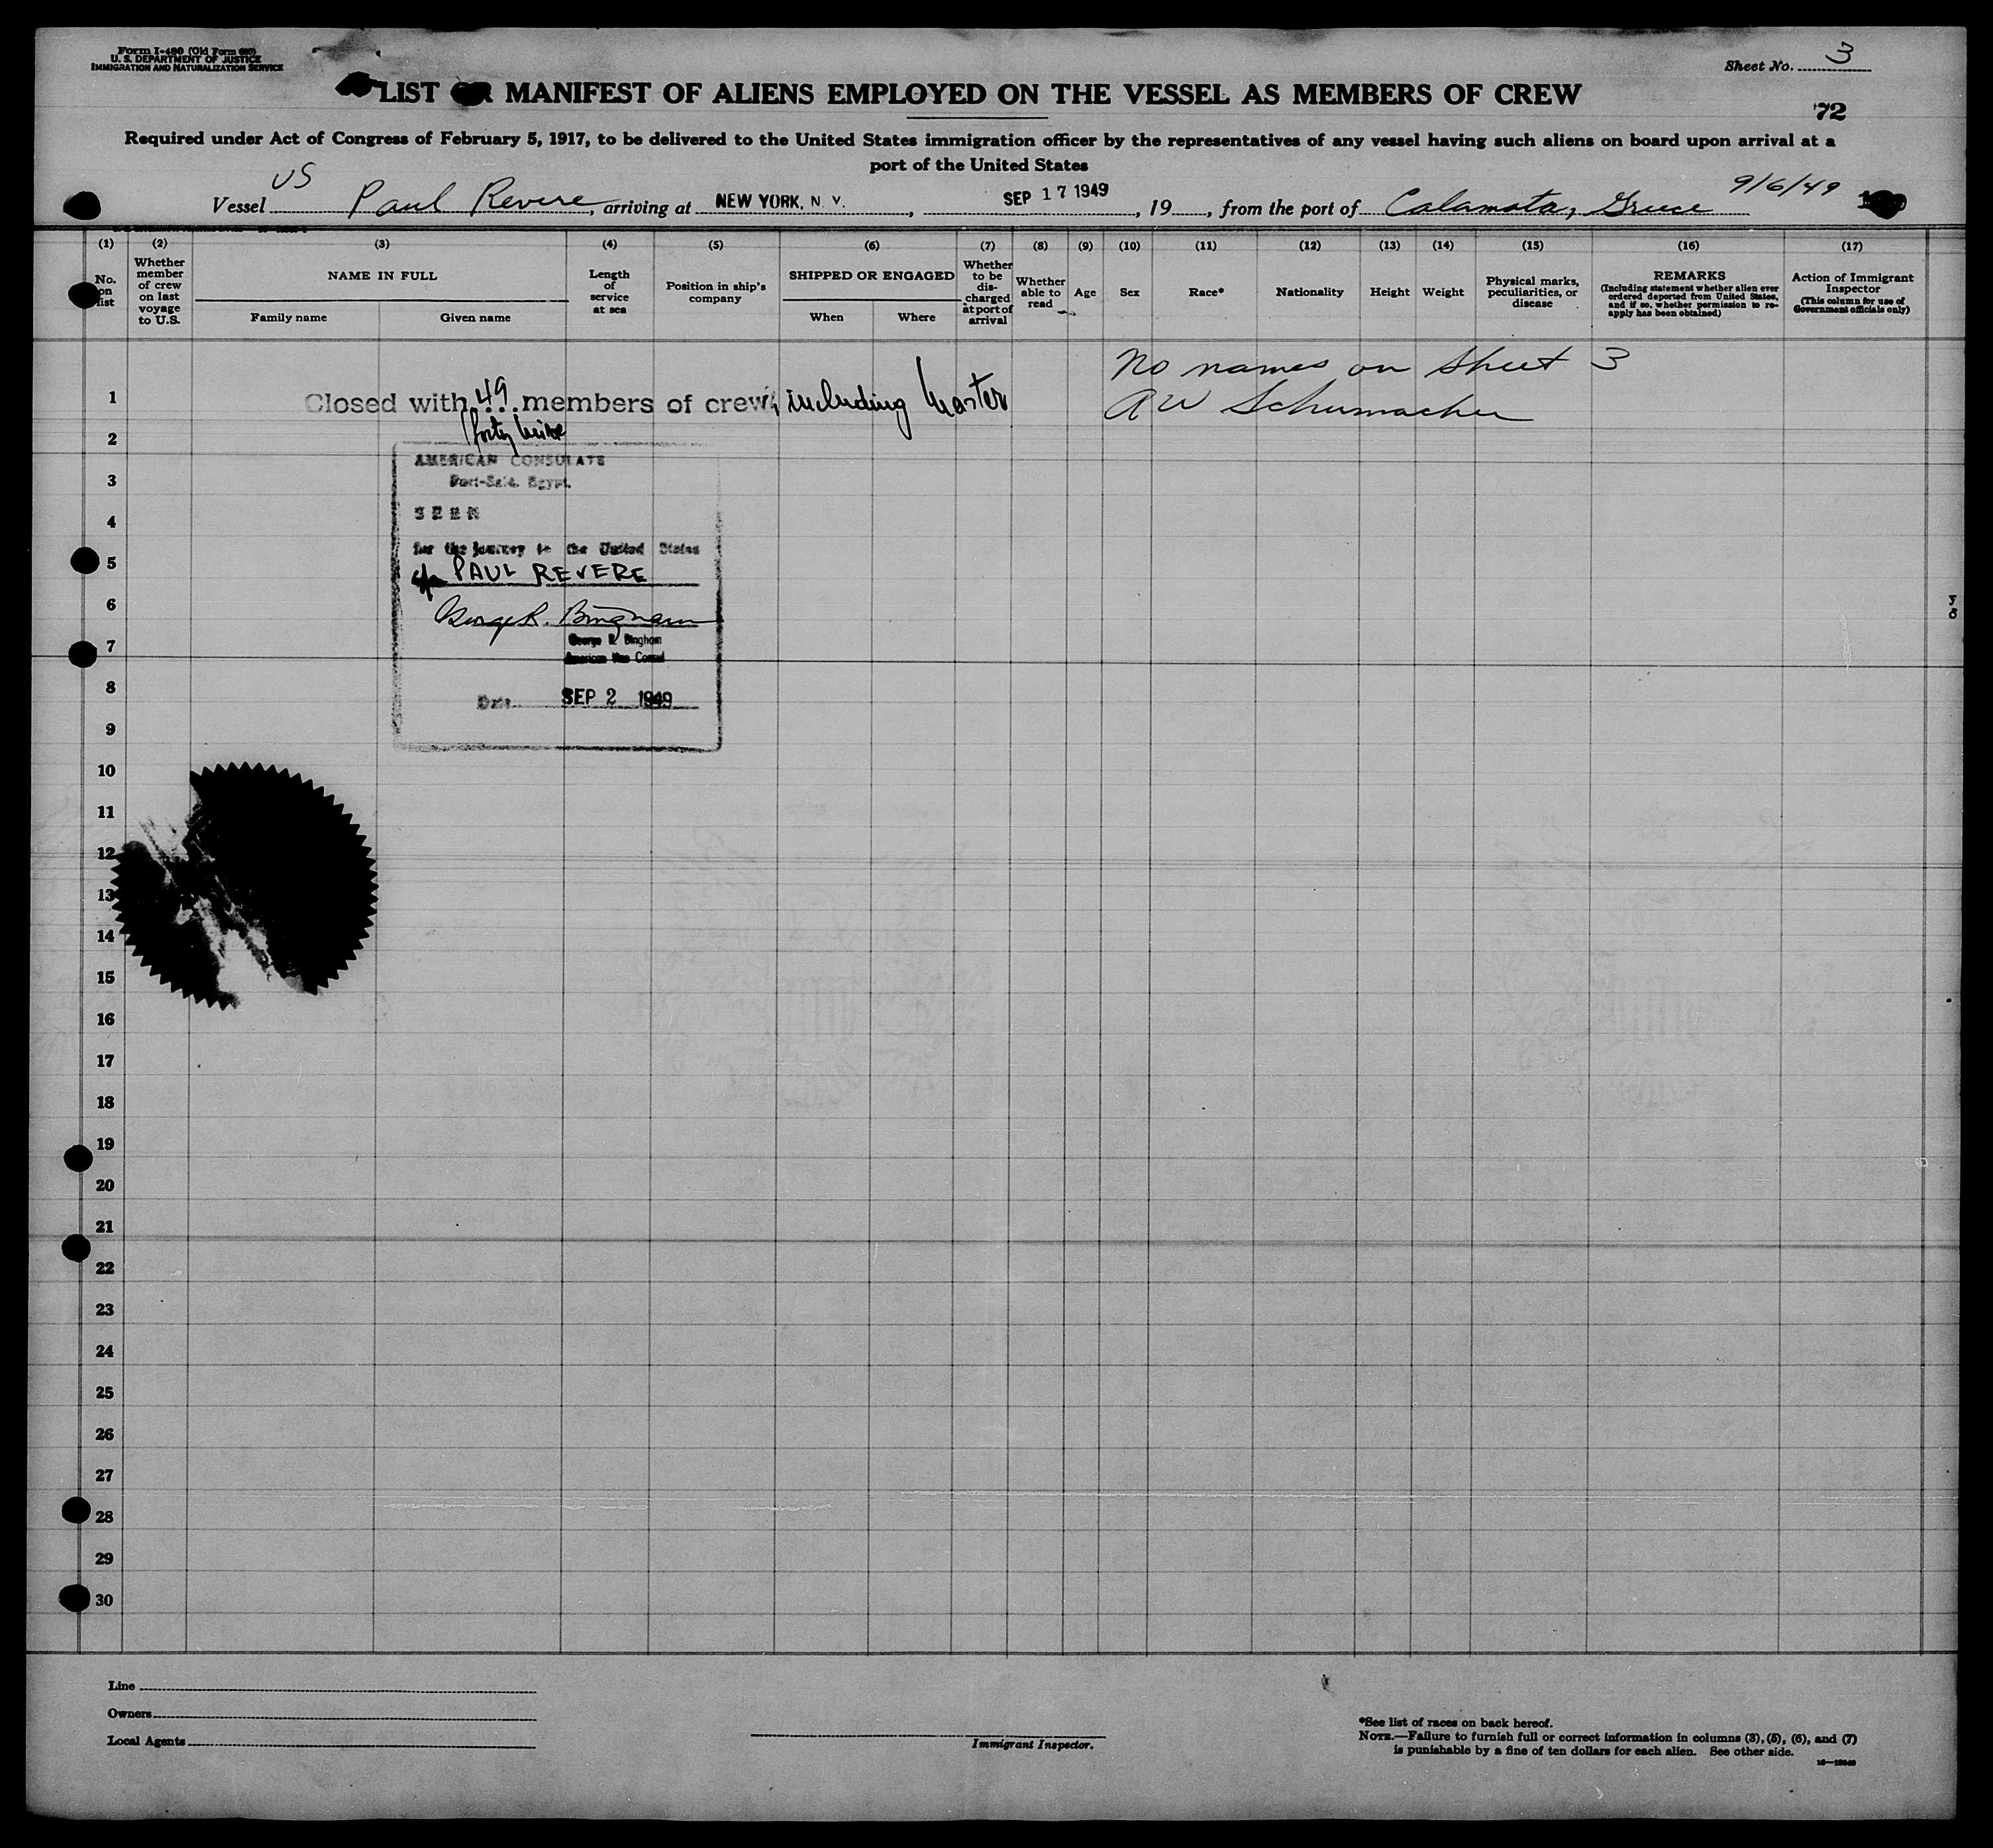 Form I-480 (Old Form 680)
U. S. DEPARTMENT OF JUSTICE
IMMIGRATION AND NATURALIZATION SERVICE
Sheet No. 3
LIST OR MANIFEST OF ALIENS EMPLOYED ON THE VESSEL AS MEMBERS OF CREW
72
Required under Act of Congress of February 5, 1917, to be delivered to the United States immigration officer by the representatives of any vessel having such aliens on board upon arrival at a
port of the United States
US
Vessel Paul Revere, arriving at NEW YORK, N. Y., SEP 17 1949, 19, from the port of Calamata, Greece 9/6/49
(1) (2) (3) (4) (5) (6) (7) (8) (9) (10) (11) (12) (13) (14) (15) (16) (17)
No. on list
Whether member of crew on last voyage to U.S.
NAME IN FULL
Family name Given name
Length of service at sea
Position in ship's company
SHIPPED OR ENGAGED
When Where
Whether to be discharged at port of arrival
Whether able to read
Age
Sex
Race*
Nationality
Height
Weight
Physical marks, peculiarities, or disease
REMARKS
(Including statement whether alien ever ordered deported from United States, and if so, whether permission to re-apply has been obtained)
Action of Immigrant Inspector
(This column for use of Government officials only)
No names on Sheet 3
1 Closed with 49 members of crew, including Master
AW Schumacher
2 forty nine
AMERICAN CONSULATE
3 Port-Said, Egypt.
SEEN
4
for the journey to the United States
5
PAUL REVERE
6 George R. Bingham
George R. Bingham
7
American Vice Consul
8
Date SEP 2 1949
9
10
11
12
13
14
15
16
17
18
19
20
21
22
23
24
25
26
27
28
29
30
Line
Owners
Local Agents
Immigrant Inspector.
*See list of races on back hereof.
NOTE.—Failure to furnish full or correct information in columns (3), (5), (6), and (7)
is punishable by a fine of ten dollars for each alien. See other side.